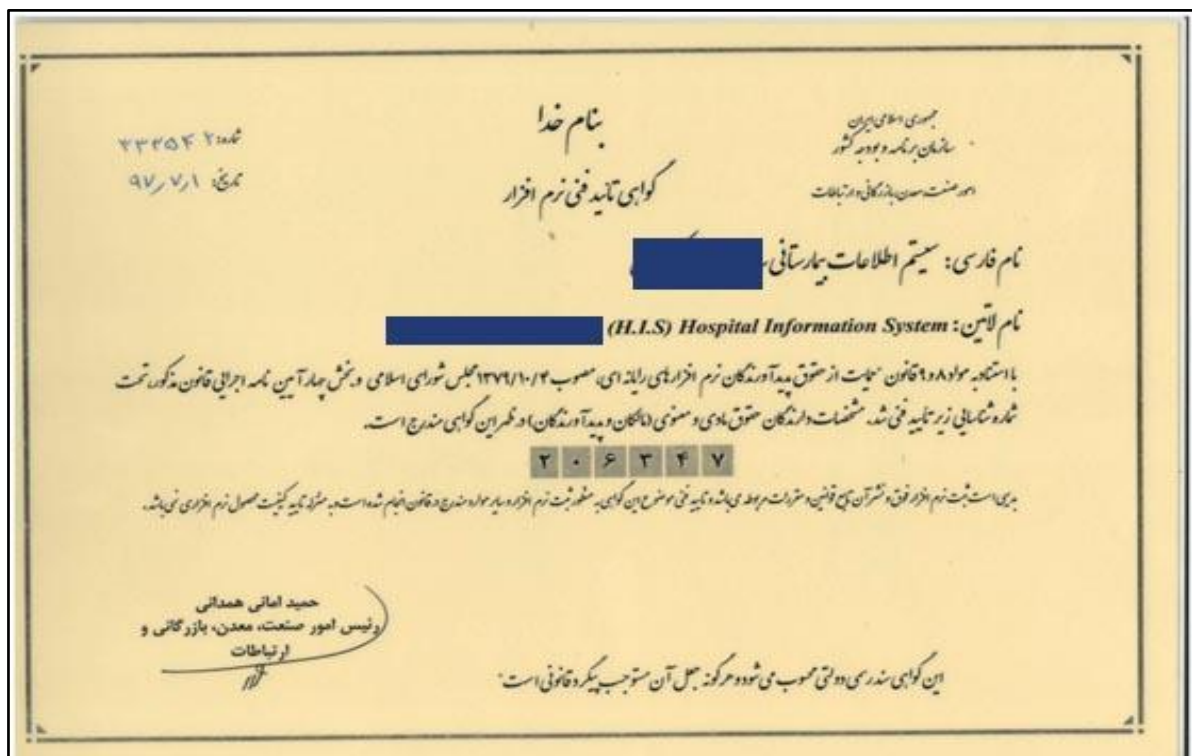 بنام خدا
جمهوری اسلامی ایران
سازمان برنامه و بودجه کشور
امور صنعت، معدن، بازرگانی و ارتباطات
شماره: ۳۳۳۵۴۲
تاریخ: ۹۷/۷/۱
گواهی تائید فنی نرم افزار
نام فارسی: سیستم اطلاعات بیمارستانی
نام لاتین: (H.I.S) Hospital Information System
با استناد به مواد ۸ و ۹ قانون حمایت از حقوق پدیدآورندگان نرم افزارهای رایانه ای، مصوب ۱۳۷۹/۱۰/۴ مجلس شورای اسلامی و بخش چهار آیین نامه اجرائی قانون مذکور، تحت
شماره شناسایی زیر تأیید فنی شد. مشخصات دارندگان حقوق مادی و معنوی (مالکان و پدیدآورندگان) در ظهر این گواهی مندرج است.
۲۰۶۳۴۷
بدیهی است ثبت نرم افزار فوق و نشر آن تابع قوانین و مقررات مربوطه می باشد و تایید فنی موضوع این گواهی به منظور ثبت نرم افزار و سایر موارد مندرج در قانون انجام شده است و به منزله تایید کیفیت محصول نرم افزاری نمی باشد.
حمید امانی همدانی
رئیس امور صنعت، معدن، بازرگانی و
ارتباطات
این گواهی سند رسمی دولتی محسوب می شود و هرگونه جعل آن مستوجب پیگرد قانونی است.